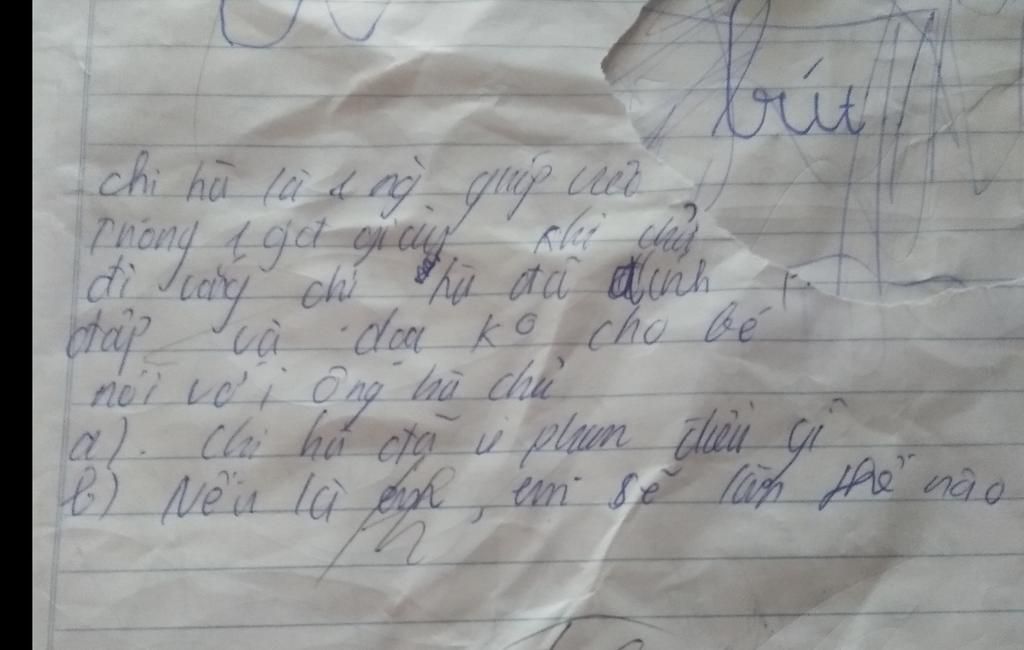 bút
chi hà là 1 ng giúp việc
Trong 1 gđ giàu khi chủ
đi vắng chi hà đã đánh
đập và doa ko cho bé
nói với ông bà chủ
a). Chi hà đã vi phạm điều gì
b) Nếu là em, em sẽ làm thế nào